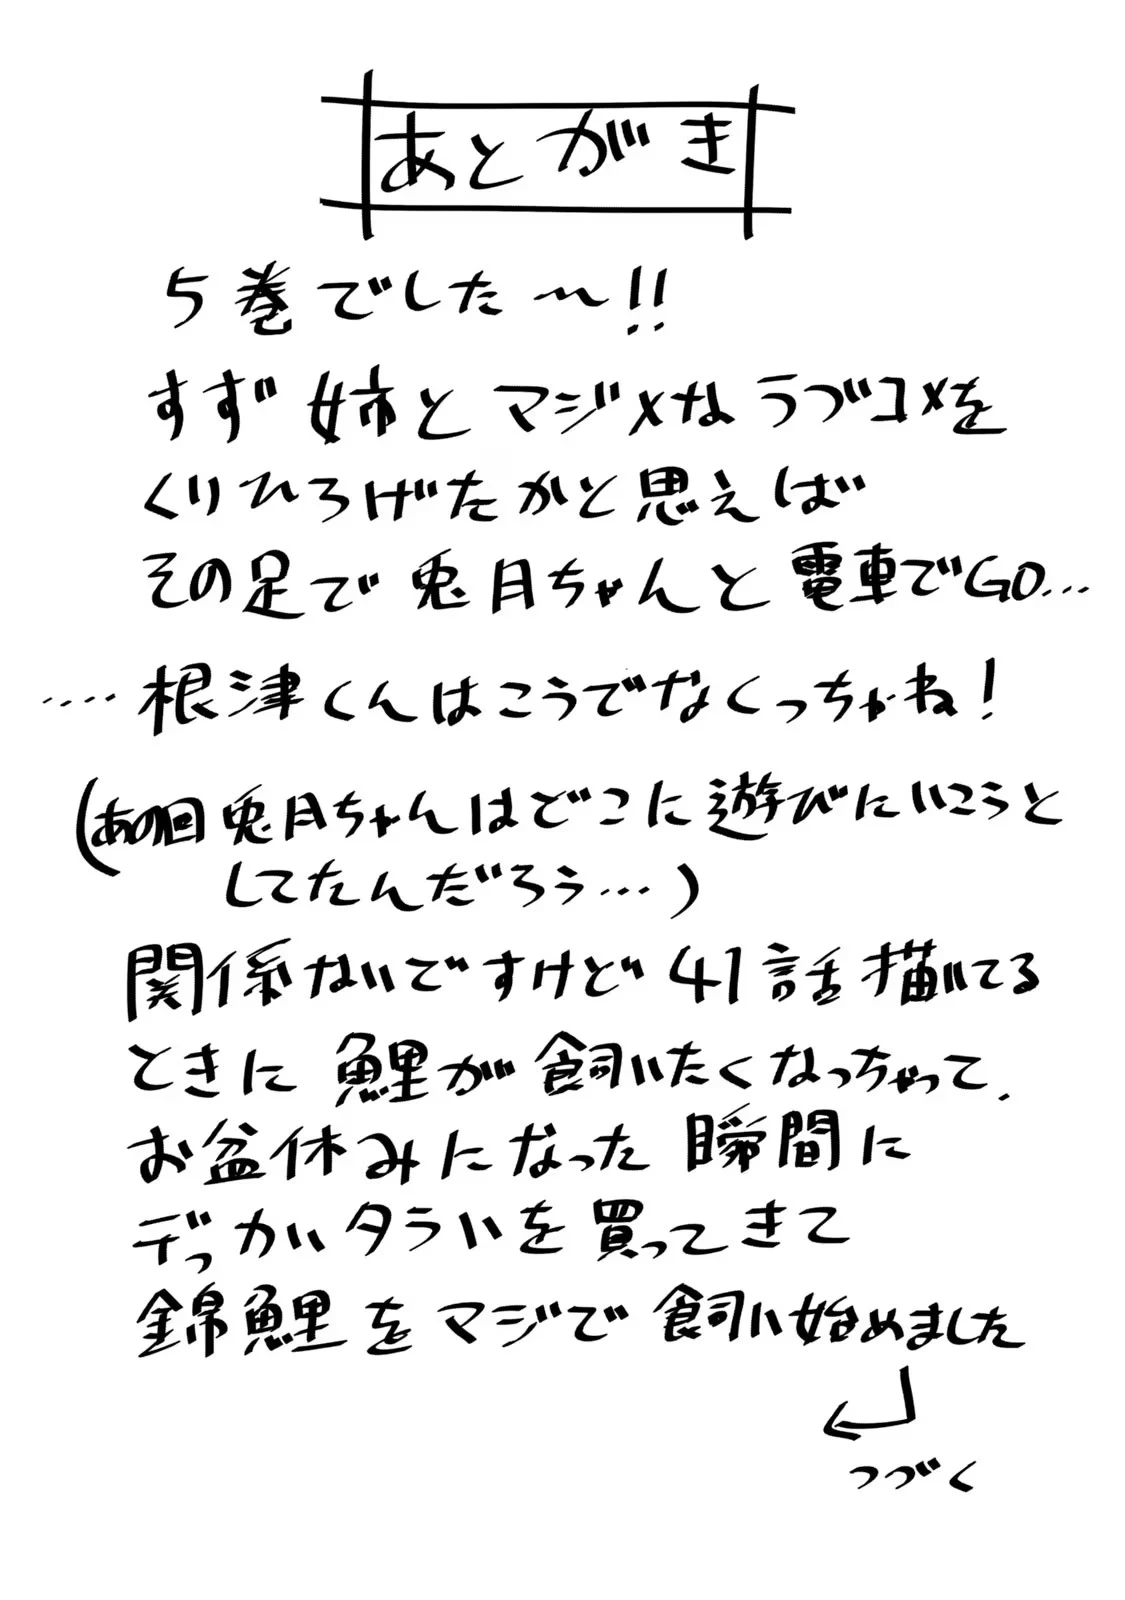 あとがき
5巻でした〜!!
すず姉とマジメなラブコメを
くりひろげたかと思えば
その足で兎月ちゃんと電車でGO…
‥‥根津くんはこうでなくっちゃね!
(あの回兎月ちゃんはどこに遊びにいこうと
してたんだろう…)
関係ないですけど41話描いてる
ときに鯉が飼いたくなっちゃって、
お盆休みになった瞬間に
デっかいタライを買ってきて
錦鯉をマジで飼い始めました
つづく